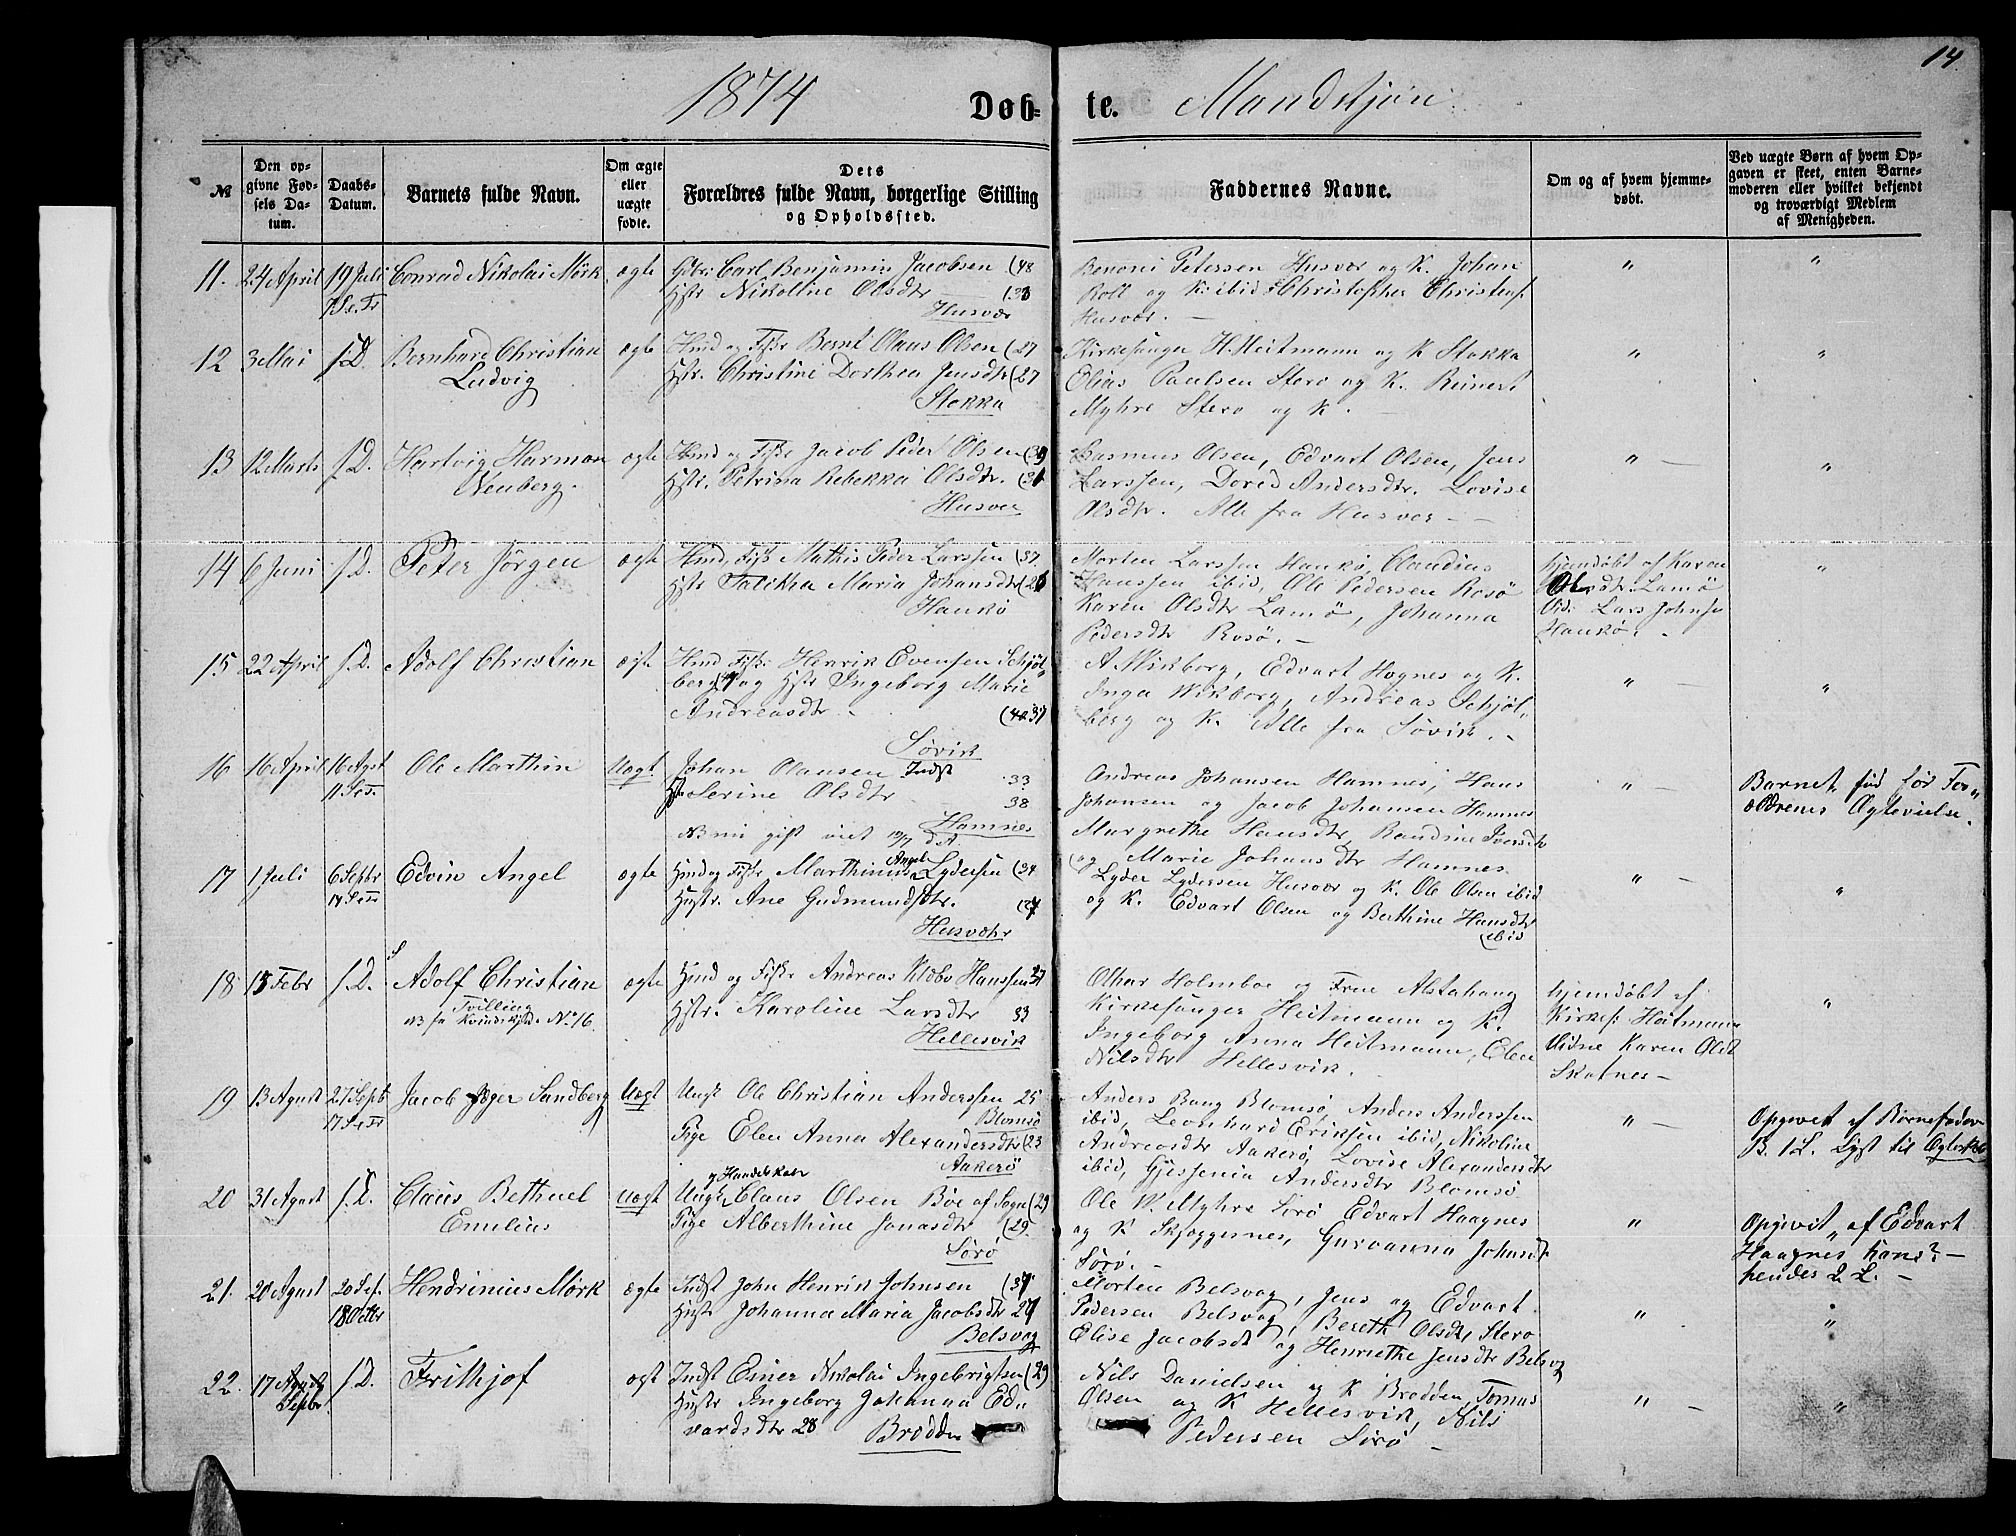 14
1874 Døb= te. Mandkjøn
№
Den op=
givne Fød=
sels Da=
tum.
Daabs=
Datum.
Barnets fulde Navn.
Om ægte
eller
uægte
fødte.
Dets
Forældres fulde Navn, borgerlige Stilling
og Opholdssted.
Faddernes Navne.
Om og af hvem hjemme=
døbt.
Ved uægte Børn af hvem Op=
gaven er skeet, enten Barne=
moderen eller hvilket bekjendt
og troværdigt Medlem
af Menigheden.
11. 24 April 19 Juli Conrad Nikolai Mørk ægte Carl Benjamin Jacobsen (48
Hstr Nikoline Olsdtr (38
Husvær
Benoni Petersen Husvær og K. Johan
Roll og K. ibid Christopher Christens.
Husvær. "
12 3 Mai s.D. Bernhard Christian ægte Hmd og Fisk Bernt Olaus Olsen (27
Ludvig
Hstr. Christine Dorthea Jensdtr (27
Stokka
Kirkesanger H. Heitmann og K Stokka
Elias Paulsen Stero og K. Reinert
Myhre Stero og K. "
13 12 Marts s.D. Hartvig Harman ægte Hmd og Fisk Jacob Peder Olsen (39
Neuberg.
Hstr. Petrina Rebekka Olsdtr. (31
Husvær
Rasmus Olsen, Edvart Olsen, Jens
Larssen, Dored Andersdtr. Lovise
Olsdtr. Alle fra Husver "
14 6 Juni s.D. Peter Jørgen ægte Hmd, Fisk Mathis Peder Larssen (37
Hstr Talikka Maria Johansdtr (26
Haukø
Morten Larssen Haukø, Claudius
Hanssen ibid, Ole Pedersen Rosø
Karen Olsdtr Lamø, Johanna
Pedersdtr Rosø.
hjemdøbt af Karen
Olsdtr. Lamø
Vid: Lars Johns.
Haukø. "
15 22 April s.D. Adolf Christian ægte Hmd Fisk: Henrik Evensen Schjøl=
berg og Hstr Ingeborg Marie
Andreasdtr. 31
Søvik
A. Wikborg, Edvart Hognes og K.
Inga Wikborg, Andreas Schjøl=
berg og K. Alle fra Søvik. "
16 16 April 16 Agst Ole Marthin Uægt Johan Olausen Indst 33
Serine Olsdtr 38
Hamnes
NB nu gift
Andreas Johansen Hamnes, Hans
Johansen og Jacob Johansen Hamnes
Margrethe Hansdtr, Randine Iversdtr
og Marie Johansdtr Hamnes. "
Barnet fød før For=
ældrenes Ægtevielse.
17 1 Juli 6 Septbr Edvin Angel ægte Hmd og Fisk Marthinus Angel Lydersen (34
Hustr. Ane Gudmundsdtr.
Husvær
Lyder Lydersen Husvær og K. Ole Olsen ibid
og K. Edvart Olsen og Berthine Hansdtr
ibid "
18 15 Febr s.D. Adolf Christian ægte Hmd og Fisk Andreas Klæbo Hanssen 37
Tvilling
NB fr Kvindekjøn No 16.
Hstr. Karoline Larsdtr 33
Hellesvik
Othar Holmboe og Frue Alstahaug
Kirkesanger Heitmann og K.
Ingeborg Anna Heitmann, Elen
Nilsdtr Hellesvik.
hjemdøbt af
Kirkes: Heitmann
Vidne Karen Olsdt
Skatnes "
19 13 Agust 27 Septb Jacob Jæger Sandberg Uægt Ungk Ole Christian Anderssen 25
Blomsø
Pige Elen Anna Alexandersdtr (23
Aakerø
Anders Bang Blomsø, Anders Anderssen
ibid, Leonhard Eriksen ibid, Nikoline
Andreasdtr Aakerø, Lovise Alexandersdtr
ibid, Gjessenia Andersdtr Blomsø "
Opgivet af Barnefader
B. 1 L. Lyst til Ægtesk
20 31 Agust s.D. Claus Bethuel Uægt Ungk og Handelskar Claus Olsen Bøe af Sogn (29
Emelius
Pige Alberthine Jonasdtr (29.
Sørø
Ole W. Myhre Sørø Edvart Haagnes
og K Skjeggernes, Gurvanna Johansdt
Sørø. "
Opgivit af Edvart
Haagnes hans ? —
hendes 2 L. —
21. 20 Agust Hendrinius Mørk ægte Indst John Henrik Johnsen (37
Hustr Johanna Maria Jacobsdtr 27
Belsvag
Morten Belsvag, Jens og Edvart
Pedersen Belsvag, Bereth Olsdtr, Stero
Elise Jacobsdt og Henriethe Jensdtr Belsvag "
22. 17 Agust s.D. Frithjof ægt Indst Einer Nikolai Ingebrigtsen (29
Septbr.
Hustr Ingeborg Johanna Ed=
vardsdtr 28 Brodden
Nils Danielsen og K Brødden, Tomas
Olsen og K Hellesvik, Nils
Pedersen Sørø "